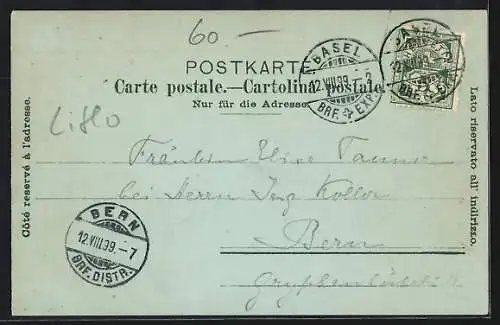 60 —
POSTKARTE
Carte postale.—Cartolina postale.
Nur für die Adresse.
BASEL
12.VIII.99.
BRF. EXP.
12.VIII.99.
BRF. EXP.
Côté reservé à l'adresse.
Lato riservato all' indirizzo.
Litho
Fräulein Elise Tanner
bei Herrn Ing Koller
Bern
BERN
12.VIII.99.-7
BRF. DISTR.